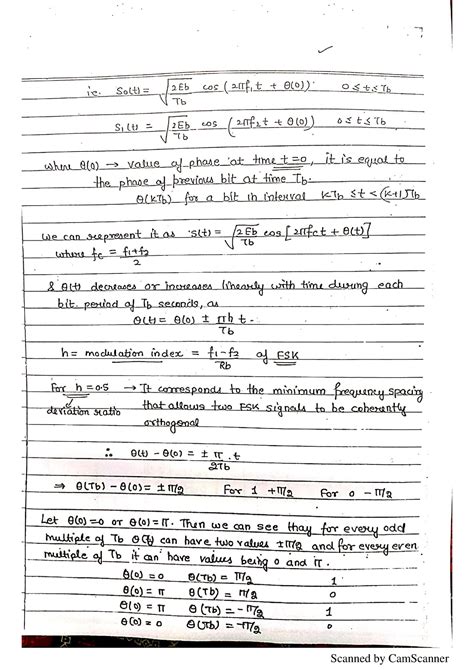 ie. S₀(t) = √(2Eb/Tb) cos (2πf₁t + θ(0)) 0 ≤ t ≤ Tb
S₁(t) = √(2Eb/Tb) cos (2πf₂t + θ(0)) 0 ≤ t ≤ Tb
where θ(0) → value of phase at time t=0, it is equal to
the phase of previous bit at time Tb.
θ(KTb) for a bit in interval KTb ≤ t < (K+1)Tb
We can represent it as S(t) = √(2Eb/Tb) cos [2πfct + θ(t)]
where fc = (f₁+f₂)/2
& θ(t) decreases or increases linearly with time during each
bit period of Tb seconds, as
θ(t) = θ(0) ± πh/Tb t.
h = modulation index = (f₁-f₂)/Rb of FSK
For h = 0.5 → It corresponds to the minimum frequency spacing
deviation ratio that allows two FSK signals to be coherently
orthogonal
∴ θ(t) - θ(0) = ± π/2Tb . t
⇒ θ(Tb) - θ(0) = ± π/2 For 1 +π/2 For 0 -π/2
Let θ(0) = 0 or θ(0) = π. Then we can see thay for every odd
multiple of Tb θ(t) can have two values ±π/2 and for every even
multiple of Tb it can have values being 0 and π.
θ(0) = 0 θ(Tb) = π/2 1
θ(0) = π θ(Tb) = π/2 0
θ(0) = π θ(Tb) = -π/2 1
θ(0) = 0 θ(Tb) = -π/2 0
Scanned by CamScanner